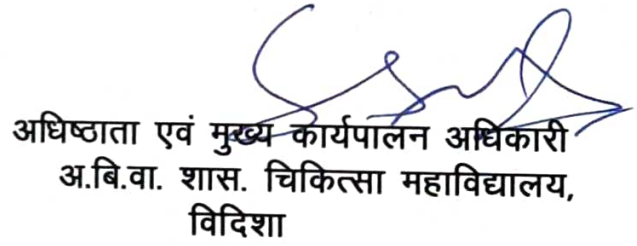 अधिष्ठाता एवं मुख्य कार्यपालन अधिकारी
अ.बि.वा. शास. चिकित्सा महाविद्यालय,
विदिशा